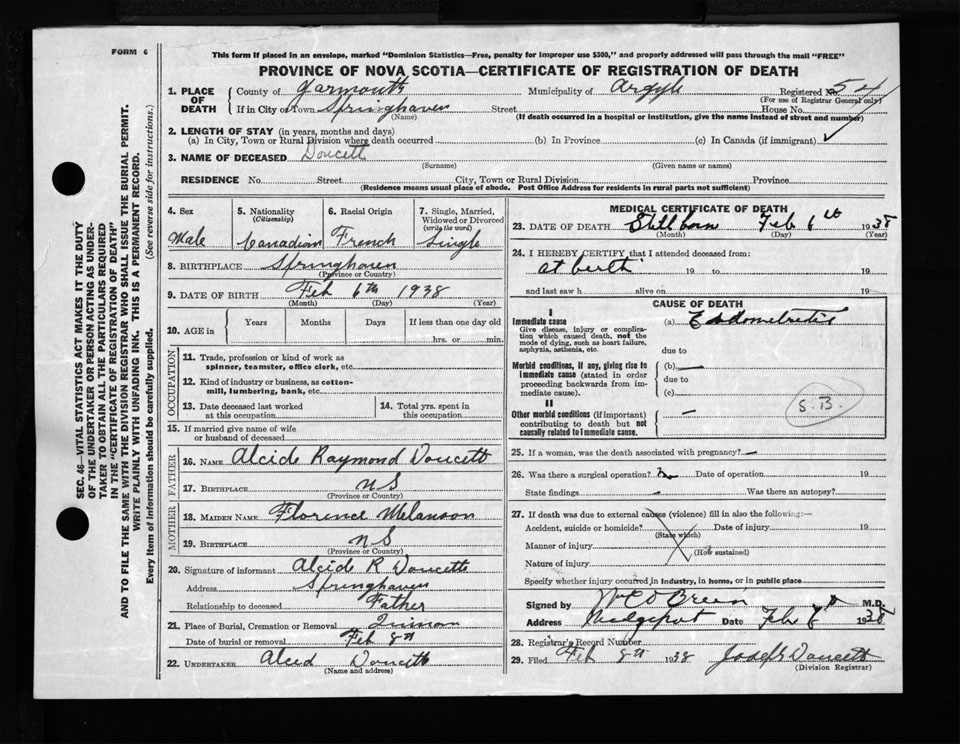 FORM 6
This form if placed in an envelope, marked "Dominion Statistics—Free, penalty for improper use $300," and properly addressed will pass through the mail "FREE"
PROVINCE OF NOVA SCOTIA—CERTIFICATE OF REGISTRATION OF DEATH
SEC. 46—VITAL STATISTICS ACT MAKES IT THE DUTY
OF THE UNDERTAKER OR PERSON ACTING AS UNDER-
TAKER TO OBTAIN ALL THE PARTICULARS REQUIRED
IN THE "CERTIFICATE OF REGISTRATION OF DEATH"
AND TO FILE THE SAME WITH THE DIVISION REGISTRAR WHO SHALL ISSUE THE BURIAL PERMIT.
WRITE PLAINLY WITH UNFADING INK. THIS IS A PERMANENT RECORD.
Every item of information should be carefully supplied. (See reverse side for instructions.)
1. PLACE OF DEATH
County of Yarmouth Municipality of Argyle Registered No. 54
(For use of Registrar General only)
If in City or Town Springhaven Street House No.
(Name) (If death occurred in a hospital or institution, give the name instead of street and number)
2. LENGTH OF STAY (in years, months and days)
(a) In City, Town or Rural Division where death occurred (b) In Province (c) In Canada (if immigrant)
3. NAME OF DECEASED Doucett
(Surname) (Given name or names)
RESIDENCE No. Street City, Town or Rural Division Province
(Residence means usual place of abode. Post Office Address for residents in rural parts not sufficient)
4. Sex
Male
5. Nationality
(Citizenship)
Canadian
6. Racial Origin
French
7. Single, Married,
Widowed or Divorced
(write the word)
Single
8. BIRTHPLACE Springhaven
(Province or Country)
9. DATE OF BIRTH Feb 6th 1938
(Month) (Day) (Year)
10. AGE in Years Months Days If less than one day old
hrs. or min.
OCCUPATION
11. Trade, profession or kind of work as
spinner, teamster, office clerk, etc.
12. Kind of industry or business, as cotton-
mill, lumbering, bank, etc.
13. Date deceased last worked
at this occupation
14. Total yrs. spent in
this occupation
15. If married give name of wife
or husband of deceased
FATHER
16. NAME Alcide Raymond Doucett
17. BIRTHPLACE N S
(Province or Country)
MOTHER
18. MAIDEN NAME Florence Melanson
19. BIRTHPLACE N S
(Province or Country)
20. Signature of informant Alcide R Doucett
Address Springhaven
Relationship to deceased Father
21. Place of Burial, Cremation or Removal Quinan
Date of burial or removal Feb 8th
22. UNDERTAKER Alcid Doucett
(Name and address)
MEDICAL CERTIFICATE OF DEATH
23. DATE OF DEATH Still born Feb 6th 1938
(Month) (Day) (Year)
24. I HEREBY CERTIFY that I attended deceased from:
at birth 19 to 19
and last saw h alive on 19
CAUSE OF DEATH
I
Immediate cause
Give disease, injury or complica-
tion which caused death, not the
mode of dying, such as heart failure,
asphyxia, asthenia, etc.
(a) Endometritis
due to
Morbid conditions, if any, giving rise to
immediate cause (stated in order
proceeding backwards from im-
mediate cause).
(b)
due to
(c)
S.B.
II
Other morbid conditions (if important)
contributing to death but not
causally related to immediate cause.
25. If a woman, was the death associated with pregnancy?
26. Was there a surgical operation? no Date of operation 19
State findings Was there an autopsy?
27. If death was due to external causes (violence) fill in also the following:—
Accident, suicide or homicide? Date of injury 19
(State which)
Manner of injury
(How sustained)
Nature of injury
Specify whether injury occurred in industry, in home, or in public place
Signed by W C O'Brien M.D.
Address Wedgeport Date Feb 6th 1938
28. Registrar's Record Number
29. Filed Feb 8th 1938 Joseph Doucett
(Division Registrar)